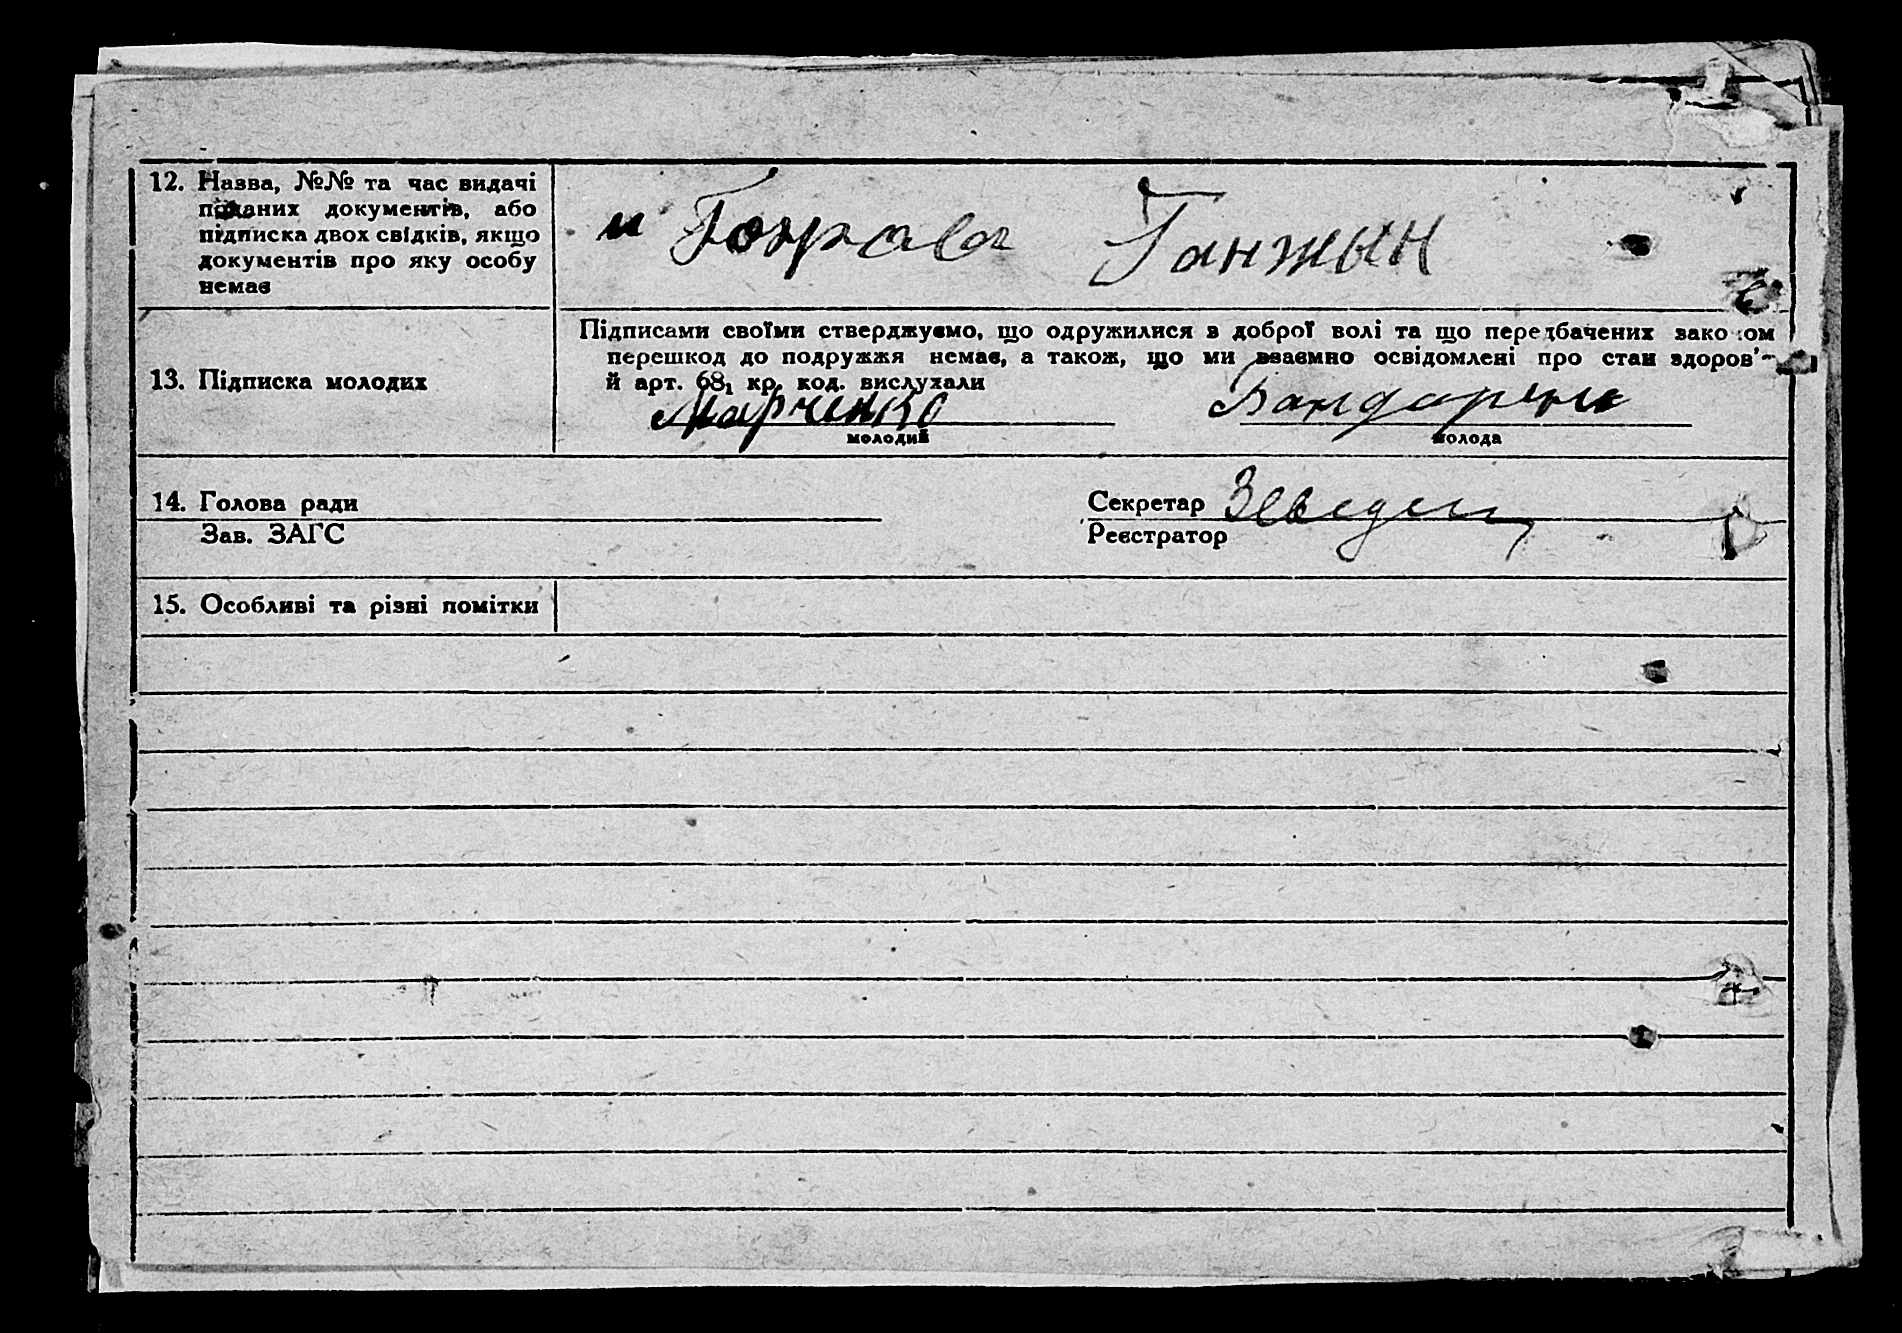 12. Назва, №№ та час видачі
поданих документів, або
підписка двох свідків, якщо
документів про яку особу
немає
Ганжын
Підписами своїми стверджуємо, що одружилися в доброї волі та що передбачених законом
перешкод до подружжя немає, а також, що ми взаємно освідомлені про стан здоров'
й арт. 68₁ кр. код. вислухали
13. Підписка молодих
Марченко
молодий
молода
14. Голова ради
Секретар
Зав. ЗАГС
Реєстратор
15. Особливі та різні помітки